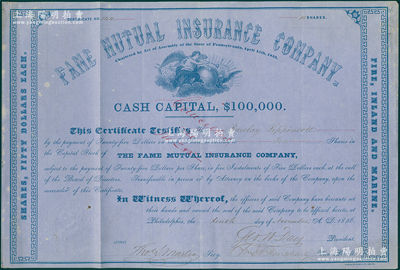 FAME MUTUAL INSURANCE COMPANY.
Chartered by Act of Assembly of the State of Pennsylvania, April
CASH CAPITAL, $100,000.
This Certificate Testifies
by the payment of Twenty-five Dollars
Shares in
the Capital Stock of THE FAME MUTUAL INSURANCE COMPANY,
subject to the payment of Twenty-five Dollars per Share, in five Instalments of Five Dollars each, at the call
of the Board of Directors. Transferable in person or by Attorney on the books of the Company, upon the
surrender of this Certificate.
In Witness Whereof, the officers of said Company have hereunto set
their hands and caused the seal of the said Company to be affixed hereto, at
Philadelphia, the day of November A. D. 1856.
President.
Secy.
SHARES, FIFTY DOLLARS EACH.
FIRE, INLAND AND MARINE.
上海陽明拍賣